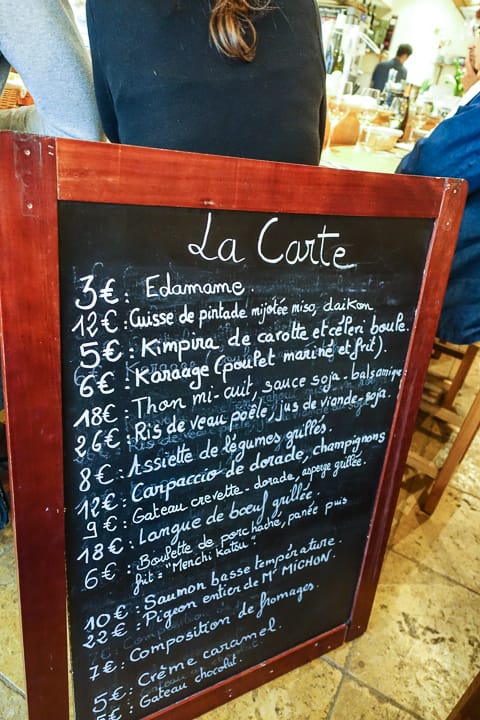 La Carte
3€ : Edamame.
12€ : Cuisse de pintade mijotée miso, daikon
5€ : Kimpira de carotte et céleri boule.
6€ : Karaage (poulet mariné et frit).
18€ : Thon mi-cuit, sauce soja-balsamique
26€ : Ris de veau poêlé, jus de viande-soja.
8€ : Assiette de légumes grillés.
12€ : Carpaccio de dorade, champignons
9€ : Gateau crevette-dorade, asperge grillée.
18€ : Langue de bœuf grillée.
6€ : Boulette de porc haché, panée puis
frit = "Menchi Katsu".
10€ : Saumon basse température.
22€ : Pigeon entier de Mr MICHON.
7€ : Composition de fromages.
5€ : Crème caramel.
5€ : Gateau chocolat.